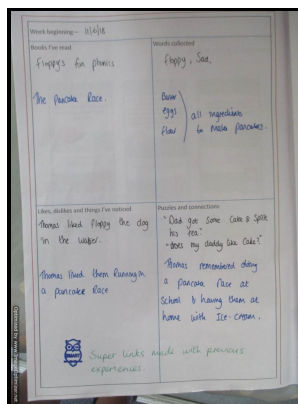 Week beginning:- 11/6/18
Books I've read
Floppy's fun phonics
The Pancake Race.
Words collected
floppy, Sad.
Butter
eggs
flour
all ingredients
to make pancakes.
Likes, dislikes and things I've noticed
Thomas liked Floppy the dog
in the water.
Thomas liked them Running in
a pancake Race
Puzzles and connections
"Dad got some cake & spilt
his tea."
"does my daddy like cake?"
Thomas remembered doing
a pancake race at
school & having them at
home with Ice-cream.
SMART
Super links made with previous
experiences.